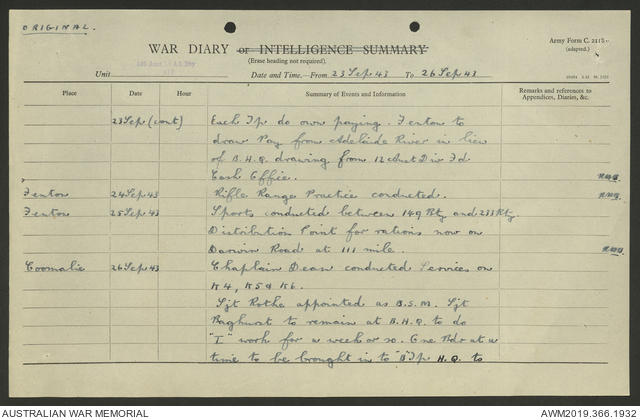 ORIGINAL.
Army Form C. 2118.
(adapted.)
WAR DIARY or INTELLIGENCE SUMMARY
(Erase heading not required).
Unit
Date and Time.—From 23 Sep 43 To 26 Sep 43
Place Date Hour Summary of Events and Information Remarks and references to Appendices, Diaries, &c.
23 Sep (cont) Each Tp do own paying. Fenton to
draw Pay from Adelaide River in lieu
of B.H.Q. drawing from 12 Aust Div Fd
Cash Office.
Fenton 24 Sep 43 Rifle Range Practice conducted.
Fenton 25 Sep 43 Sports conducted between 149 Bty and 233 Bty.
Distribution Point for rations now on
Darwin Road at 111 mile.
Coomalie 26 Sep 43 Chaplain Dean conducted Services on
K4, K5 & K6.
Sjt Rothe appointed as B.S.M. Sjt
Baghurst to remain at B.H.Q. to do
"I" work for a week or so. One Bdr at a
time to be brought in to "B" Tp H.Q. to
AUSTRALIAN WAR MEMORIAL
AWM2019.366.1932